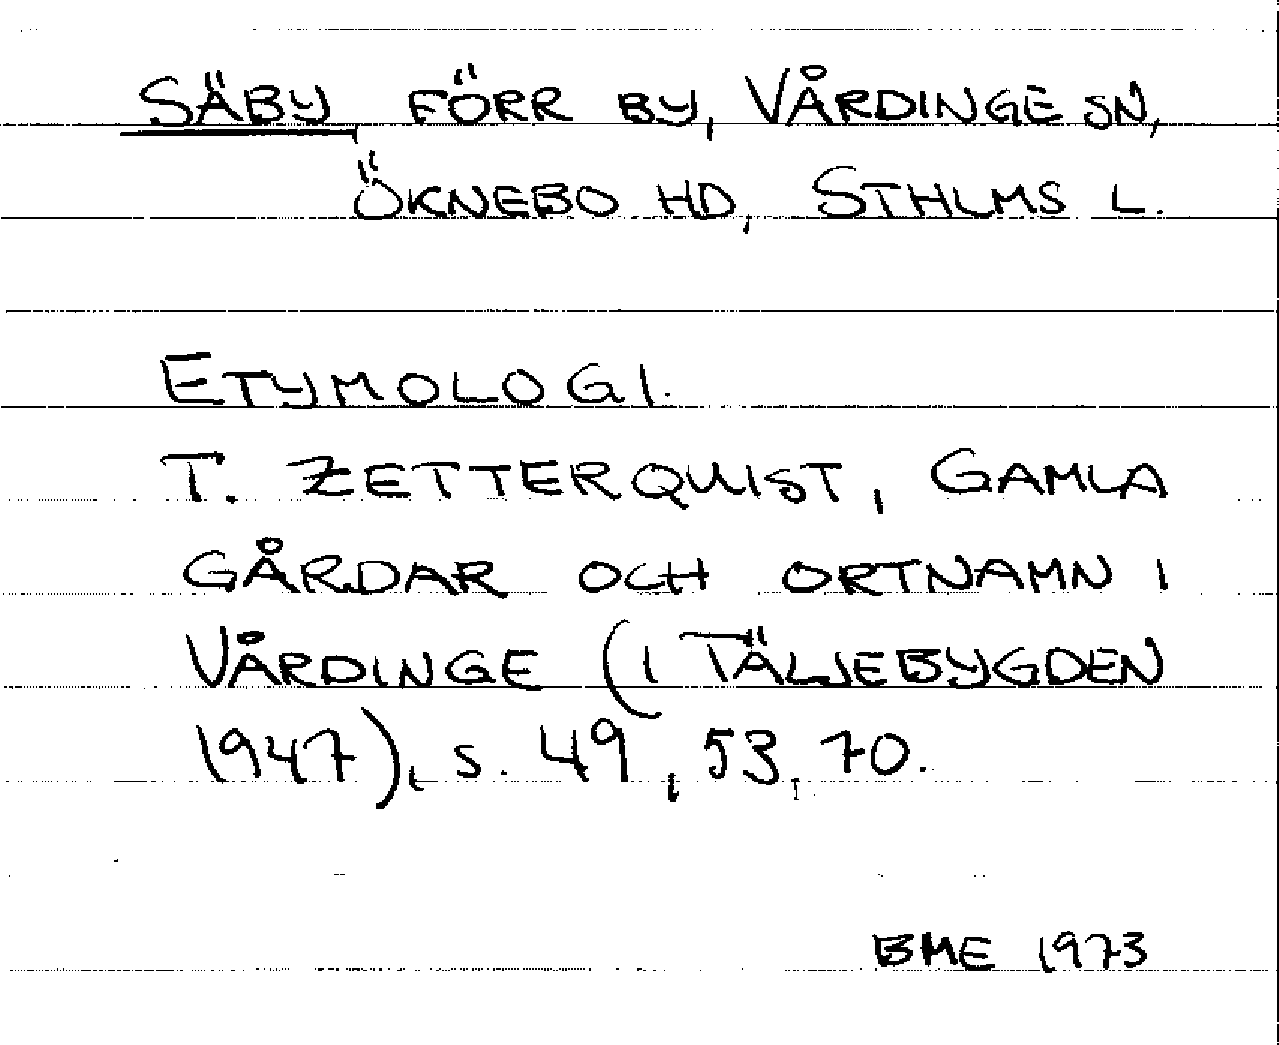 SÄBY FÖRR BY, VÅRDINGE SN,
ÖKNEBO HD, STHLMS L.
ETYMOLOGI.
T. ZETTERQUIST, GAMLA
GÅRDAR OCH ORTNAMN I
VÅRDINGE (I TÄLJEBYGDEN
1947), s. 49, 53, 70.
BME 1973